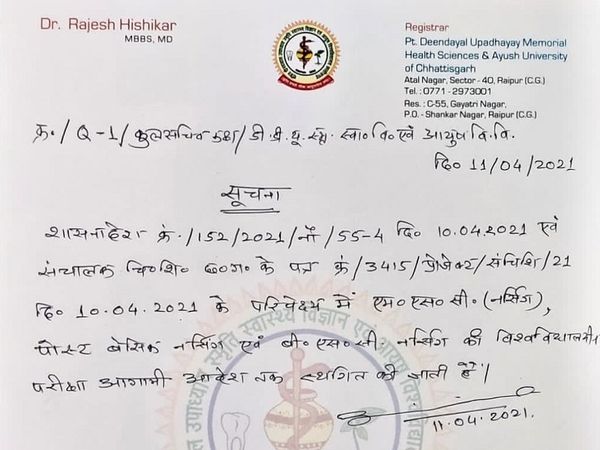 Dr. Rajesh Hishikar
MBBS, MD
Registrar
Pt. Deendayal Upadhayay Memorial
Health Sciences & Ayush University
of Chhattisgarh
Atal Nagar, Sector - 40, Raipur (C.G.)
Tel. : 0771 - 2973001
Res. : C-55, Gayatri Nagar,
P.O. - Shankar Nagar, Raipur (C.G.)
क्र./Q-1/कुलसचिव कक्ष/डी.पी.यू.स्मृ. स्वा०वि० एवं आयुष वि.वि.
दि० 11/04/2021
सूचना
शासनादेश क्रं./152/2021/नौ/55-4 दि० 10.04.2021 एवं
संचालक चि०शि० छ०ग० के पत्र क्रं/3415/प्रोजेक्ट/संचिशि/21
दि० 10.04.2021 के परिपेक्ष्य में एम०एस०सी० (नर्सिंग),
पोस्ट बेसिक नर्सिंग एवं बी०एस०सी० नर्सिंग की विश्वविद्यालयीन
परीक्षा आगामी आदेश तक स्थगित की जाती है।
11.04.2021.